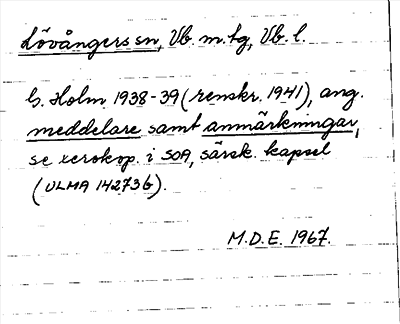 Lövångers sn, Vb. m. tg, Vb. l.
G. Holm 1938-39 (renskr. 1941), ang.
meddelare samt anmärkningar,
se xerokop. i SOA, särsk. kapsel
(ULMA 14273 G).
M.D.E. 1967.